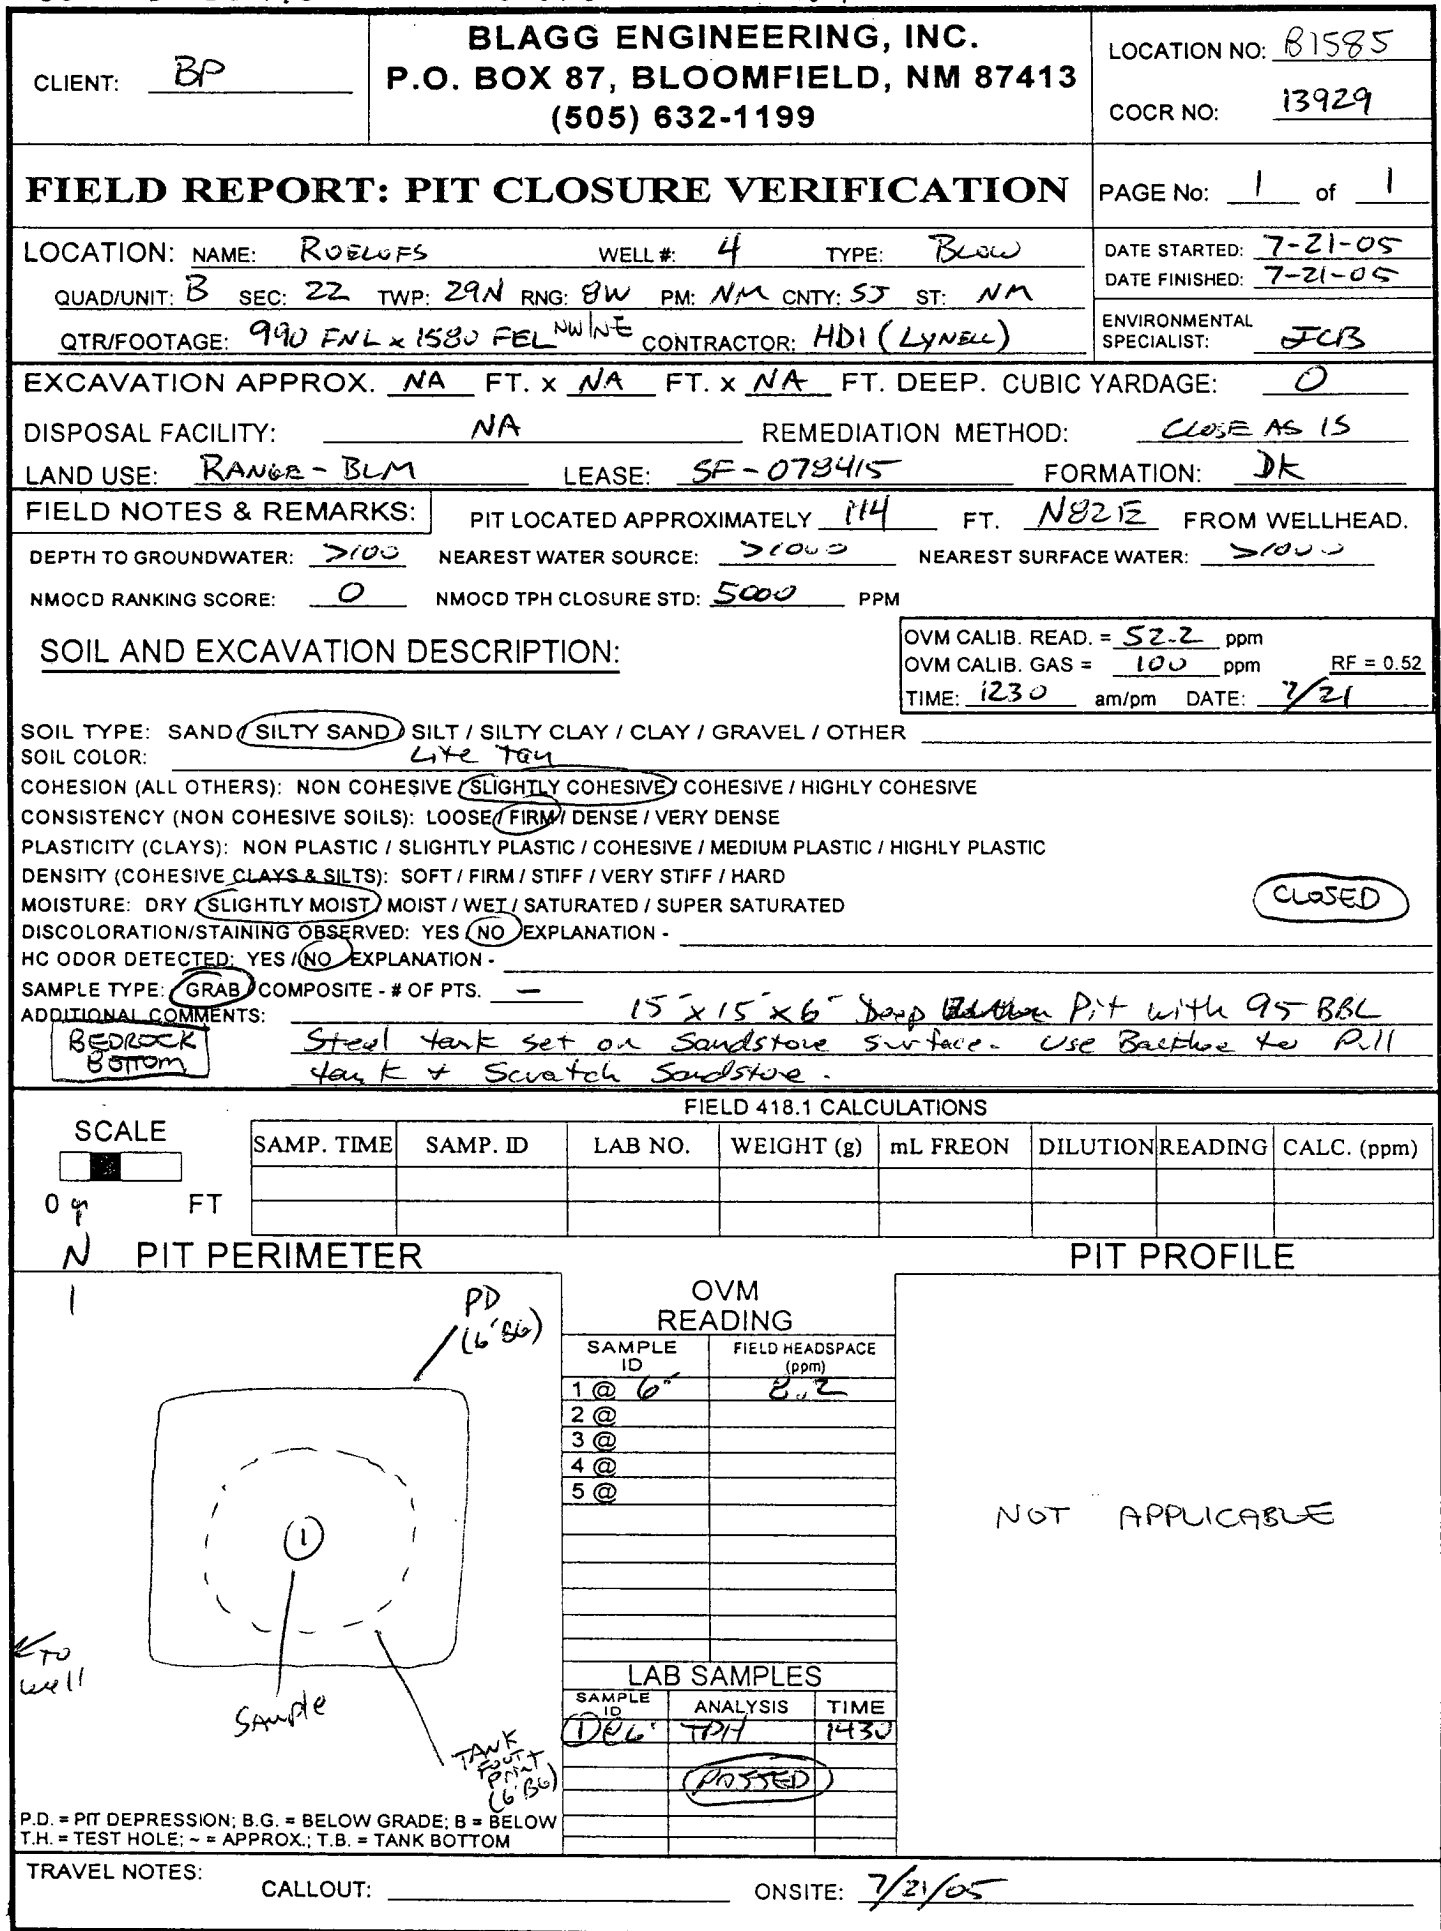 BLAGG ENGINEERING, INC.
P.O. BOX 87, BLOOMFIELD, NM 87413
(505) 632-1199
CLIENT: BP
LOCATION NO: B1585
COCR NO: 13929
FIELD REPORT: PIT CLOSURE VERIFICATION
PAGE No: 1 of 1
LOCATION: NAME: ROELOFS WELL #: 4 TYPE: BLOW
QUAD/UNIT: B SEC: 22 TWP: 29N RNG: 8W PM: NM CNTY: SJ ST: NM
QTR/FOOTAGE: 990 FNL x 1580 FEL NW/NE CONTRACTOR: HDI (LYNELL)
DATE STARTED: 7-21-05
DATE FINISHED: 7-21-05
ENVIRONMENTAL SPECIALIST: JCB
EXCAVATION APPROX. NA FT. x NA FT. x NA FT. DEEP. CUBIC YARDAGE: 0
DISPOSAL FACILITY: NA REMEDIATION METHOD: CLOSE AS IS
LAND USE: RANGE - BLM LEASE: SF-078415 FORMATION: DK
FIELD NOTES & REMARKS: PIT LOCATED APPROXIMATELY 114 FT. N82E FROM WELLHEAD.
DEPTH TO GROUNDWATER: >100 NEAREST WATER SOURCE: >1000 NEAREST SURFACE WATER: >1000
NMOCD RANKING SCORE: 0 NMOCD TPH CLOSURE STD: 5000 PPM
SOIL AND EXCAVATION DESCRIPTION:
OVM CALIB. READ. = 52.2 ppm
OVM CALIB. GAS = 100 ppm RF = 0.52
TIME: 1230 am/pm DATE: 7/21
SOIL TYPE: SAND / SILTY SAND / SILT / SILTY CLAY / CLAY / GRAVEL / OTHER
SOIL COLOR: Lite Tan
COHESION (ALL OTHERS): NON COHESIVE / SLIGHTLY COHESIVE / COHESIVE / HIGHLY COHESIVE
CONSISTENCY (NON COHESIVE SOILS): LOOSE / FIRM / DENSE / VERY DENSE
PLASTICITY (CLAYS): NON PLASTIC / SLIGHTLY PLASTIC / COHESIVE / MEDIUM PLASTIC / HIGHLY PLASTIC
DENSITY (COHESIVE CLAYS & SILTS): SOFT / FIRM / STIFF / VERY STIFF / HARD
MOISTURE: DRY / SLIGHTLY MOIST / MOIST / WET / SATURATED / SUPER SATURATED
CLOSED
DISCOLORATION/STAINING OBSERVED: YES / NO EXPLANATION -
HC ODOR DETECTED: YES / NO EXPLANATION -
SAMPLE TYPE: GRAB / COMPOSITE - # OF PTS. —
ADDITIONAL COMMENTS: 15' x 15' x 6' Deep Pit with 95 BBL
BEDROCK BOTTOM
Steel tank set on Sandstone surface. Use Backhoe to Pull
tank & Scratch Sandstone.
FIELD 418.1 CALCULATIONS
SCALE
0 FT
SAMP. TIME SAMP. ID LAB NO. WEIGHT (g) mL FREON DILUTION READING CALC. (ppm)
N
PIT PERIMETER
PIT PROFILE
PD
(6' BG)
OVM
READING
SAMPLE ID FIELD HEADSPACE (ppm)
1 @ 6' 8.2
2 @
3 @
4 @
5 @
1
NOT APPLICABLE
TO
well
Sample
TANK
FOOT
PRINT
(6' BG)
LAB SAMPLES
SAMPLE ID ANALYSIS TIME
1@6' TPH 1430
PASSED
P.D. = PIT DEPRESSION; B.G. = BELOW GRADE; B = BELOW
T.H. = TEST HOLE; ~ = APPROX.; T.B. = TANK BOTTOM
TRAVEL NOTES: CALLOUT: ONSITE: 7/21/05